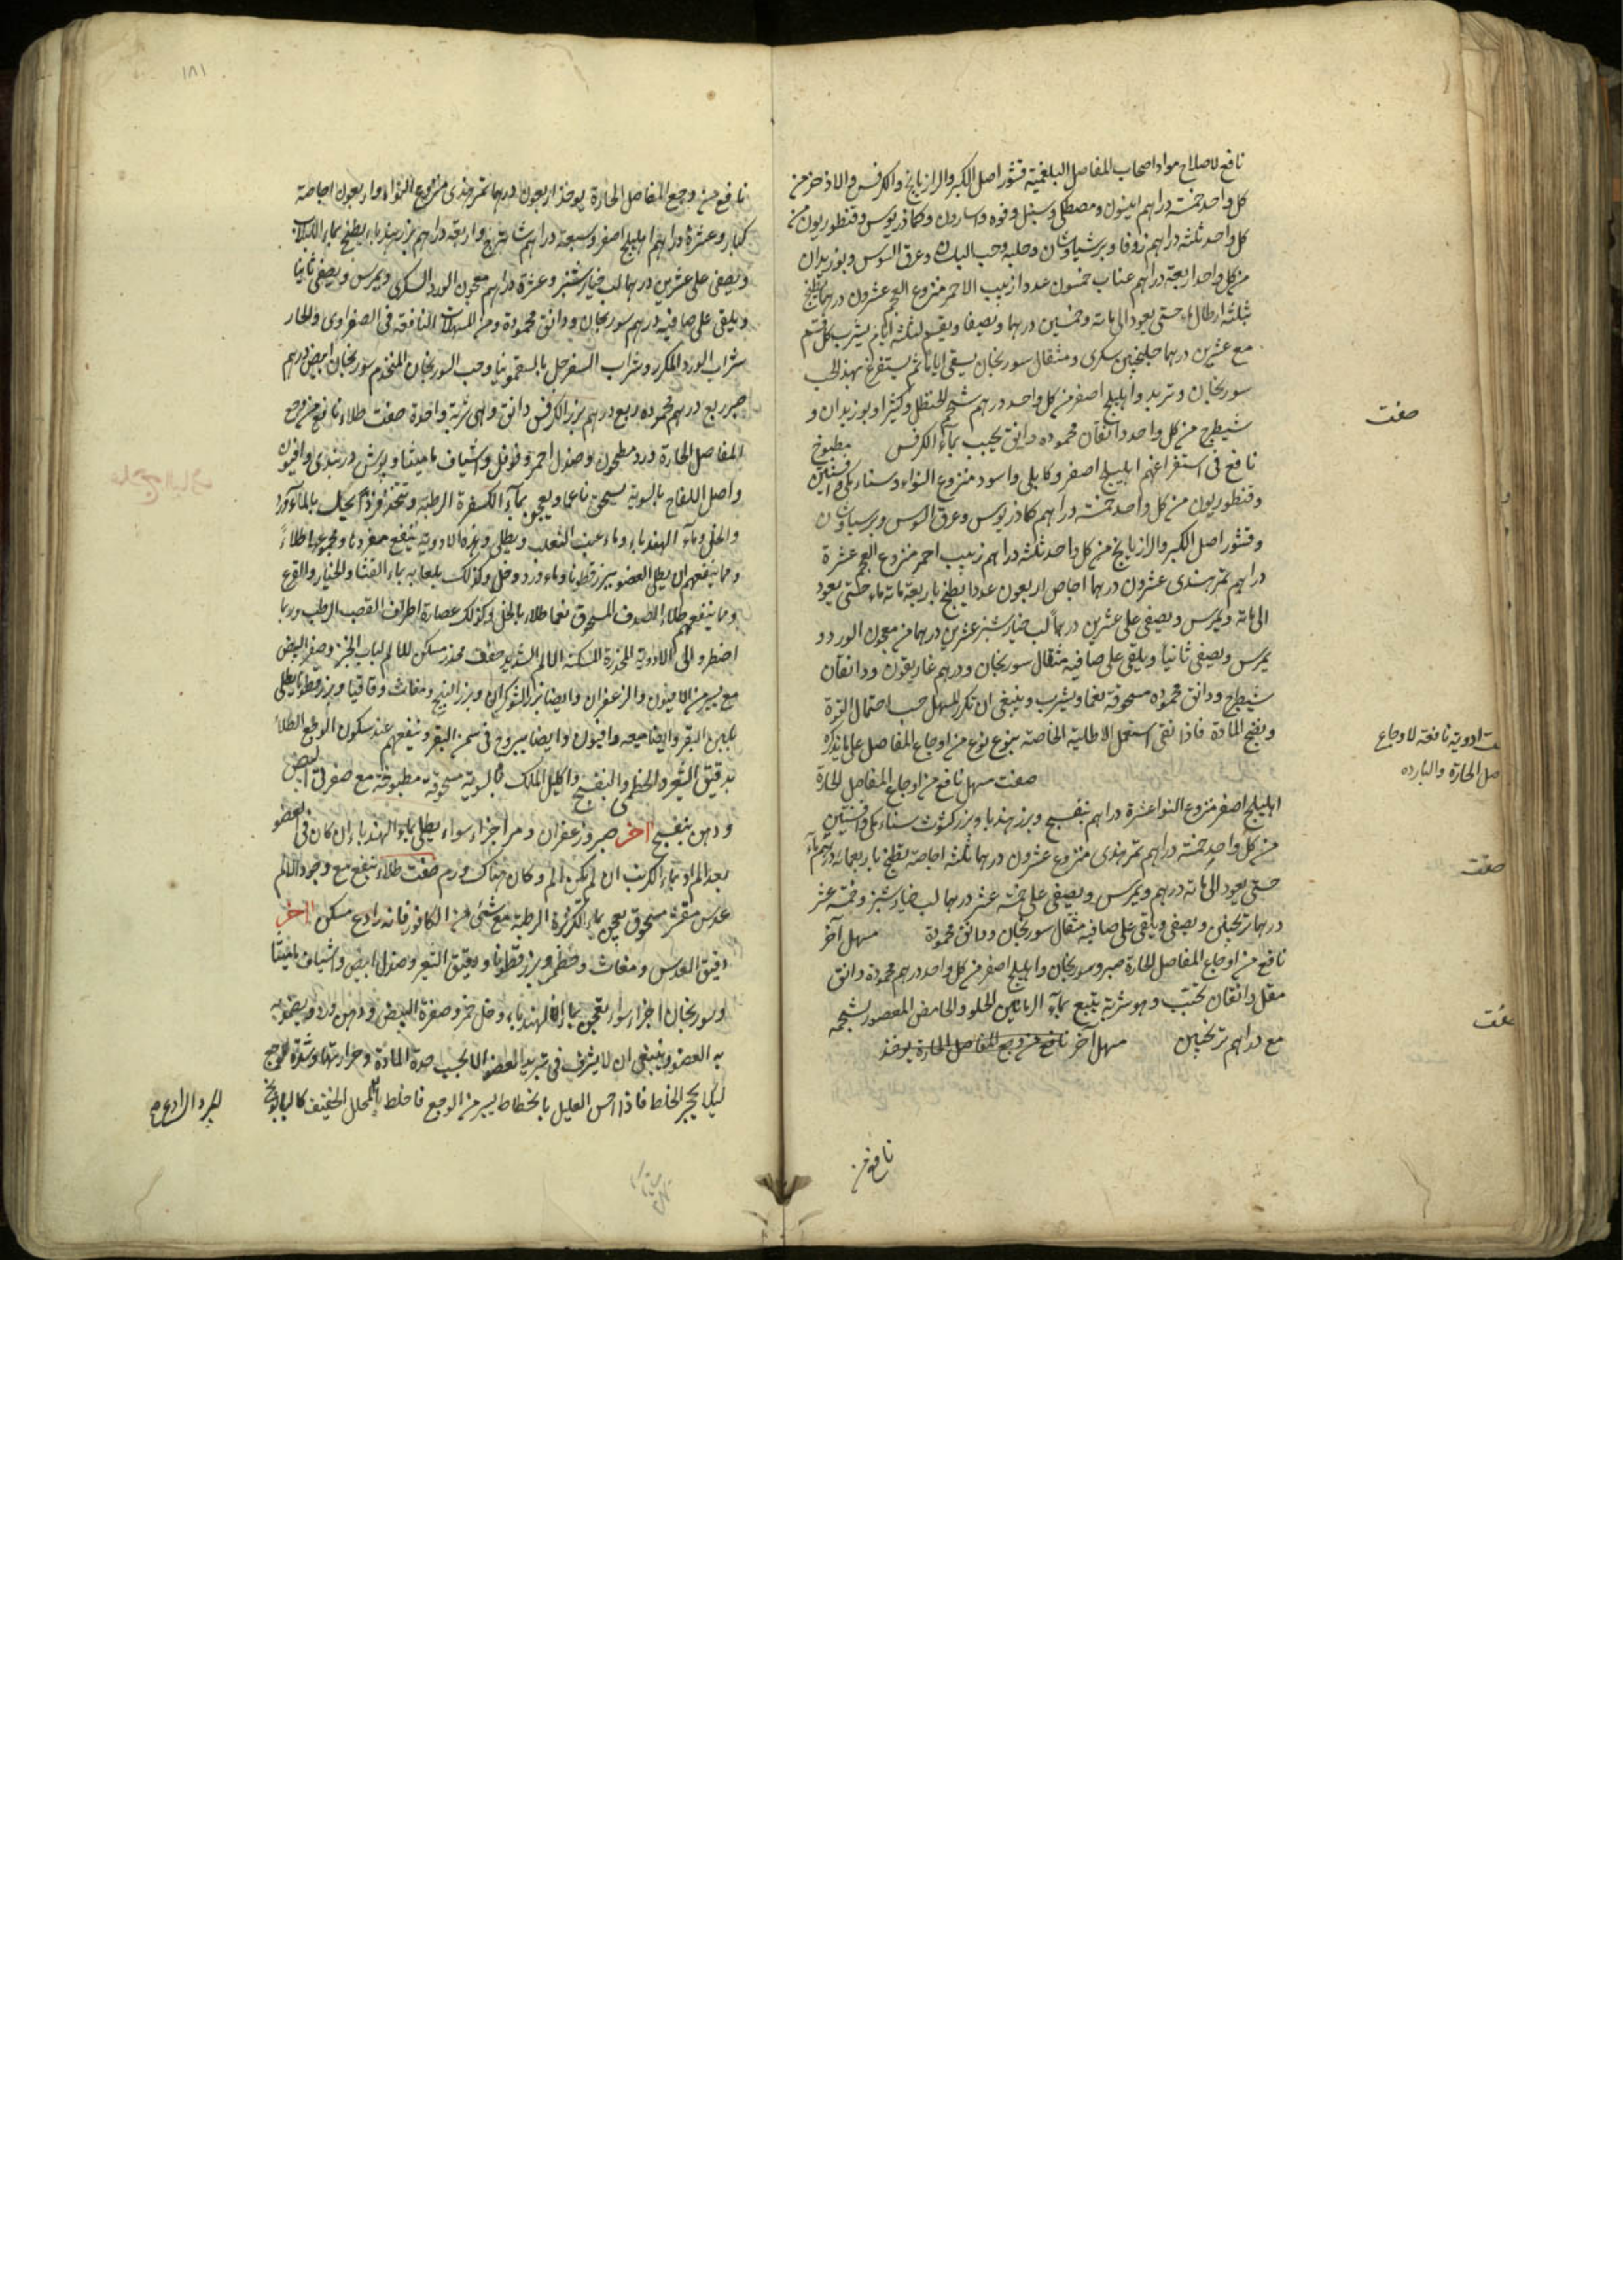 نافع لاصلاح مواد اصحاب المفاصل البلغمية قشور اصل الكبر والرازيانج والكرفس والاذخر من
كل واحد خمسة دراهم انيسون ومصطكى وسنبل وفوه واسارون وكماذريوس وقنطوريون من
كل واحد ثلثة دراهم زوفا وبرشياوشان وحلبة وحب البان وعرق السوس وبوزيدان
من كل واحد اربعة دراهم عناب خمسون عددا زبيب الاحمر منزوع العجم عشرون درهما يطبخ
بثلثة ارطال ماء حتى يعود الى مائة وخمسين درهما ويصفا ويقسم لثلثة ايام يشرب كل قسم
مع عشرين درهما جلنجبين سكرى ومثقال سورنجان يسقى اياما ثم يستفرغ بهذا الحب
صفت
سورنجان وتربد واهليلج اصفر من كل واحد درهم شحم الحنظل وكثيرا وبوزيدان و
شيطرج من كل واحد دانقان محموده دانق يحبب بماء الكرفس مطبوخ
نافع فى استفراغهم اهليلج اصفر وكابلى واسود منزوع النواء وسناء مكى وافسنتين
وقنطوريون من كل واحد خمسة دراهم كماذريوس وعرق السوس وبرسياوشان
وقشور اصل الكبر والرازيانج من كل واحد ثلثة دراهم زبيب احمر منزوع العجم عشرة
دراهم تمر هندى عشرون درهما اجاص اربعون عددا يطبخ باربعة مائة ماء حتى يعود
الى مائة ويمرس ويصفى على عشرين درهما لب خيارشنبر عشرين درهما من معجون الورد و
يمرس ويصفى ثانيا ويلقى على صافيه مثقال سورنجان ودرهم غاريقون ودانقان
شيطرج ودانق محموده مسحوقة نعما ويشرب وينبغى ان تكرر المسهل حسب احتمال القوة
ونضج المادة فاذا نقى استعمل الاطلية الخاصة بنوع نوع من اوجاع المفاصل على ما نذكره
ادوية نافعة لاوجاع
الحارة والبارده
صفت مسهل نافع من اوجاع المفاصل الحارة
اهليلج اصفر منزوع النوا عشرة دراهم بنفسج وبزر هندبا وبزر كشوث سناء مكى وافسنتين
من كل واحد خمسة دراهم تمر هندى منزوع عشرون درهما ثلثة اجاصة يطبخ باربعمائة درهم ماء
صفت
حتى يعود الى مائة درهم ويمرس ويصفى على خمسة عشر درهما لب خيارشنبر وخمسة عشر
درهما ترنجبين ويصفى ويلقى على صافيه مثقال سورنجان ودانق محمودة مسهل آخر
نافع من اوجاع المفاصل الحارة صبر وسورنجان واهليلج اصفر من كل واحد درهم محمودة دانق
مقل دانقان يحبب وهو شربة يتبع بماء الرمانين الحلو والحامض المعصور بشحمه
صفت
مع دراهم ترنجبين مسهل آخر نافع من وجع المفاصل الحارة يوخذ
نافع من
١٨١
نافع من وجع المفاصل الحارة يوخذ اربعون درهما تمر هندى منزوع النواء واربعون اجاصة
كبار وعشرة دراهم اهليلج اصفر وسبعة دراهم شاهترج واربعة دراهم بزر هندباء يطبخ بماء
ويصفى على عشرين درهما لب خيارشنبر وعشرة دراهم معجون الورد السكرى ويمرس ويصفى ثانيا
ويلقى على صافيه درهم سورنجان ودانق محمودة ومن المسهلات النافعة فى الصفراوى والحار
شراب الورد المكرر وشراب السفرجل بالسقمونيا وحب السورنجان المتخذ من سورنجان ابيض درهم
صبر ربع درهم محموده ربع درهم بزر الكرفس دانق وهى شربة واحدة صفت طلاء نافع من وجع
المفاصل الحارة ورد مطحون وصندل احمر وفوفل واشياف ماميثا وبوش دربندى وافيون
واصل اللفاح بالسوية يسحق ناعما ويعجن بماء الكسفرة الرطبة ويتخذ اقراصا يحك بالماء ورد
والخل وماء الهندباء وماء عنب الثعلب ويطلى وهذه الادوية ينفع مفردها ومجموعها طلاءً
ومما ينفعهم ان يطلى العضو ببزر قطونا وماء ورد وخل وكذلك بلعابه بماء القثاء والخيار والقرع
ومما ينفعهم طلاء الصدف المسحوق نعما طلاء بالخل وكذلك عصارة اطراف القصب الرطب وربما
اضطر والى الادوية المخدرة المسكنة الالم الشديد صفت مخدر مسكن للالم لباب الخبز وصفر البيض
مع يسير من الافيون والزعفران وايضا بزر الشوكران وبزر البنج ومغاث وقاقيا وبزر قطونا يطلى
بلبن البقر وايضا ميعه وافيون وايضا يبروح فى سمن البقر وينفعهم عند سكون الوجع الطلاء
بدقيق الشعير والخطمى والبنفسج واكليل الملك بالسوية مسحوقة مطبوخة مع صفرة البيض
ودهن بنفسج آخر صبر وزعفران ومر اجزاء سواء يطلى بماء الهندباء ان كان فى العضو
بعد الم او بماء الكرنب ان لم يكن الم وكان هناك ورم صفت طلاء ينفع مع وجود الالم
عدس مقشر مسحوق يعجن بماء الكزبرة الرطبة مع شئ من الكافور فانه رادع مسكن آخر
دقيق العدس ومغاث وخطمى وبزر قطونا ودقيق الشعير وصندل ابيض واشياف ماميثا
وسورنجان اجزاء سواء يعجن بماء الهندباء وخل خمر وصفرة البيض ودهن ورد ويضمد
به العضو وينبغى ان لا يسرف فى تبريد العضو الا بحسب حدة المادة وحرارتها وشدة الوجع
ليلا يحجر الخلط فاذا احس العليل بانحطاط يسير من الوجع فاخلط بالمحلل الخفيف كالبابونج